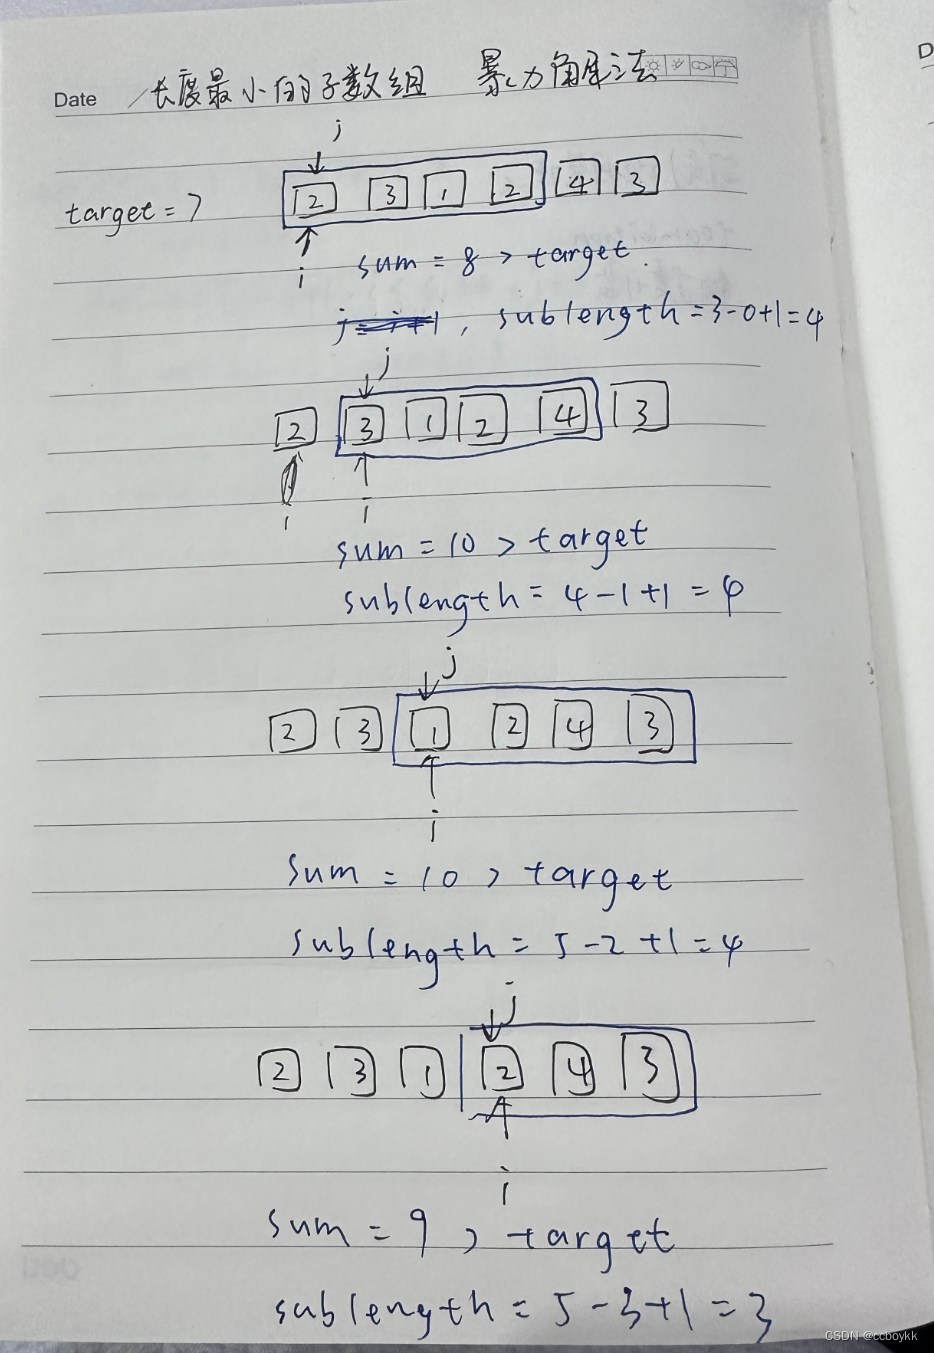 Date 长度最小的子数组 暴力解法
j
target = 7 2 3 1 2 4 3
i
sum = 8 > target.
, sublength = 3-0+1 = 4
j
2 3 1 2 4 3
i i
sum = 10 > target
sublength = 4-1+1 = 4
j
2 3 1 2 4 3
i
sum = 10 > target
sublength = 5-2+1 = 4
j
2 3 1 2 4 3
i
sum = 9 > target
sublength = 5-3+1 = 3
CSDN @ccboykk